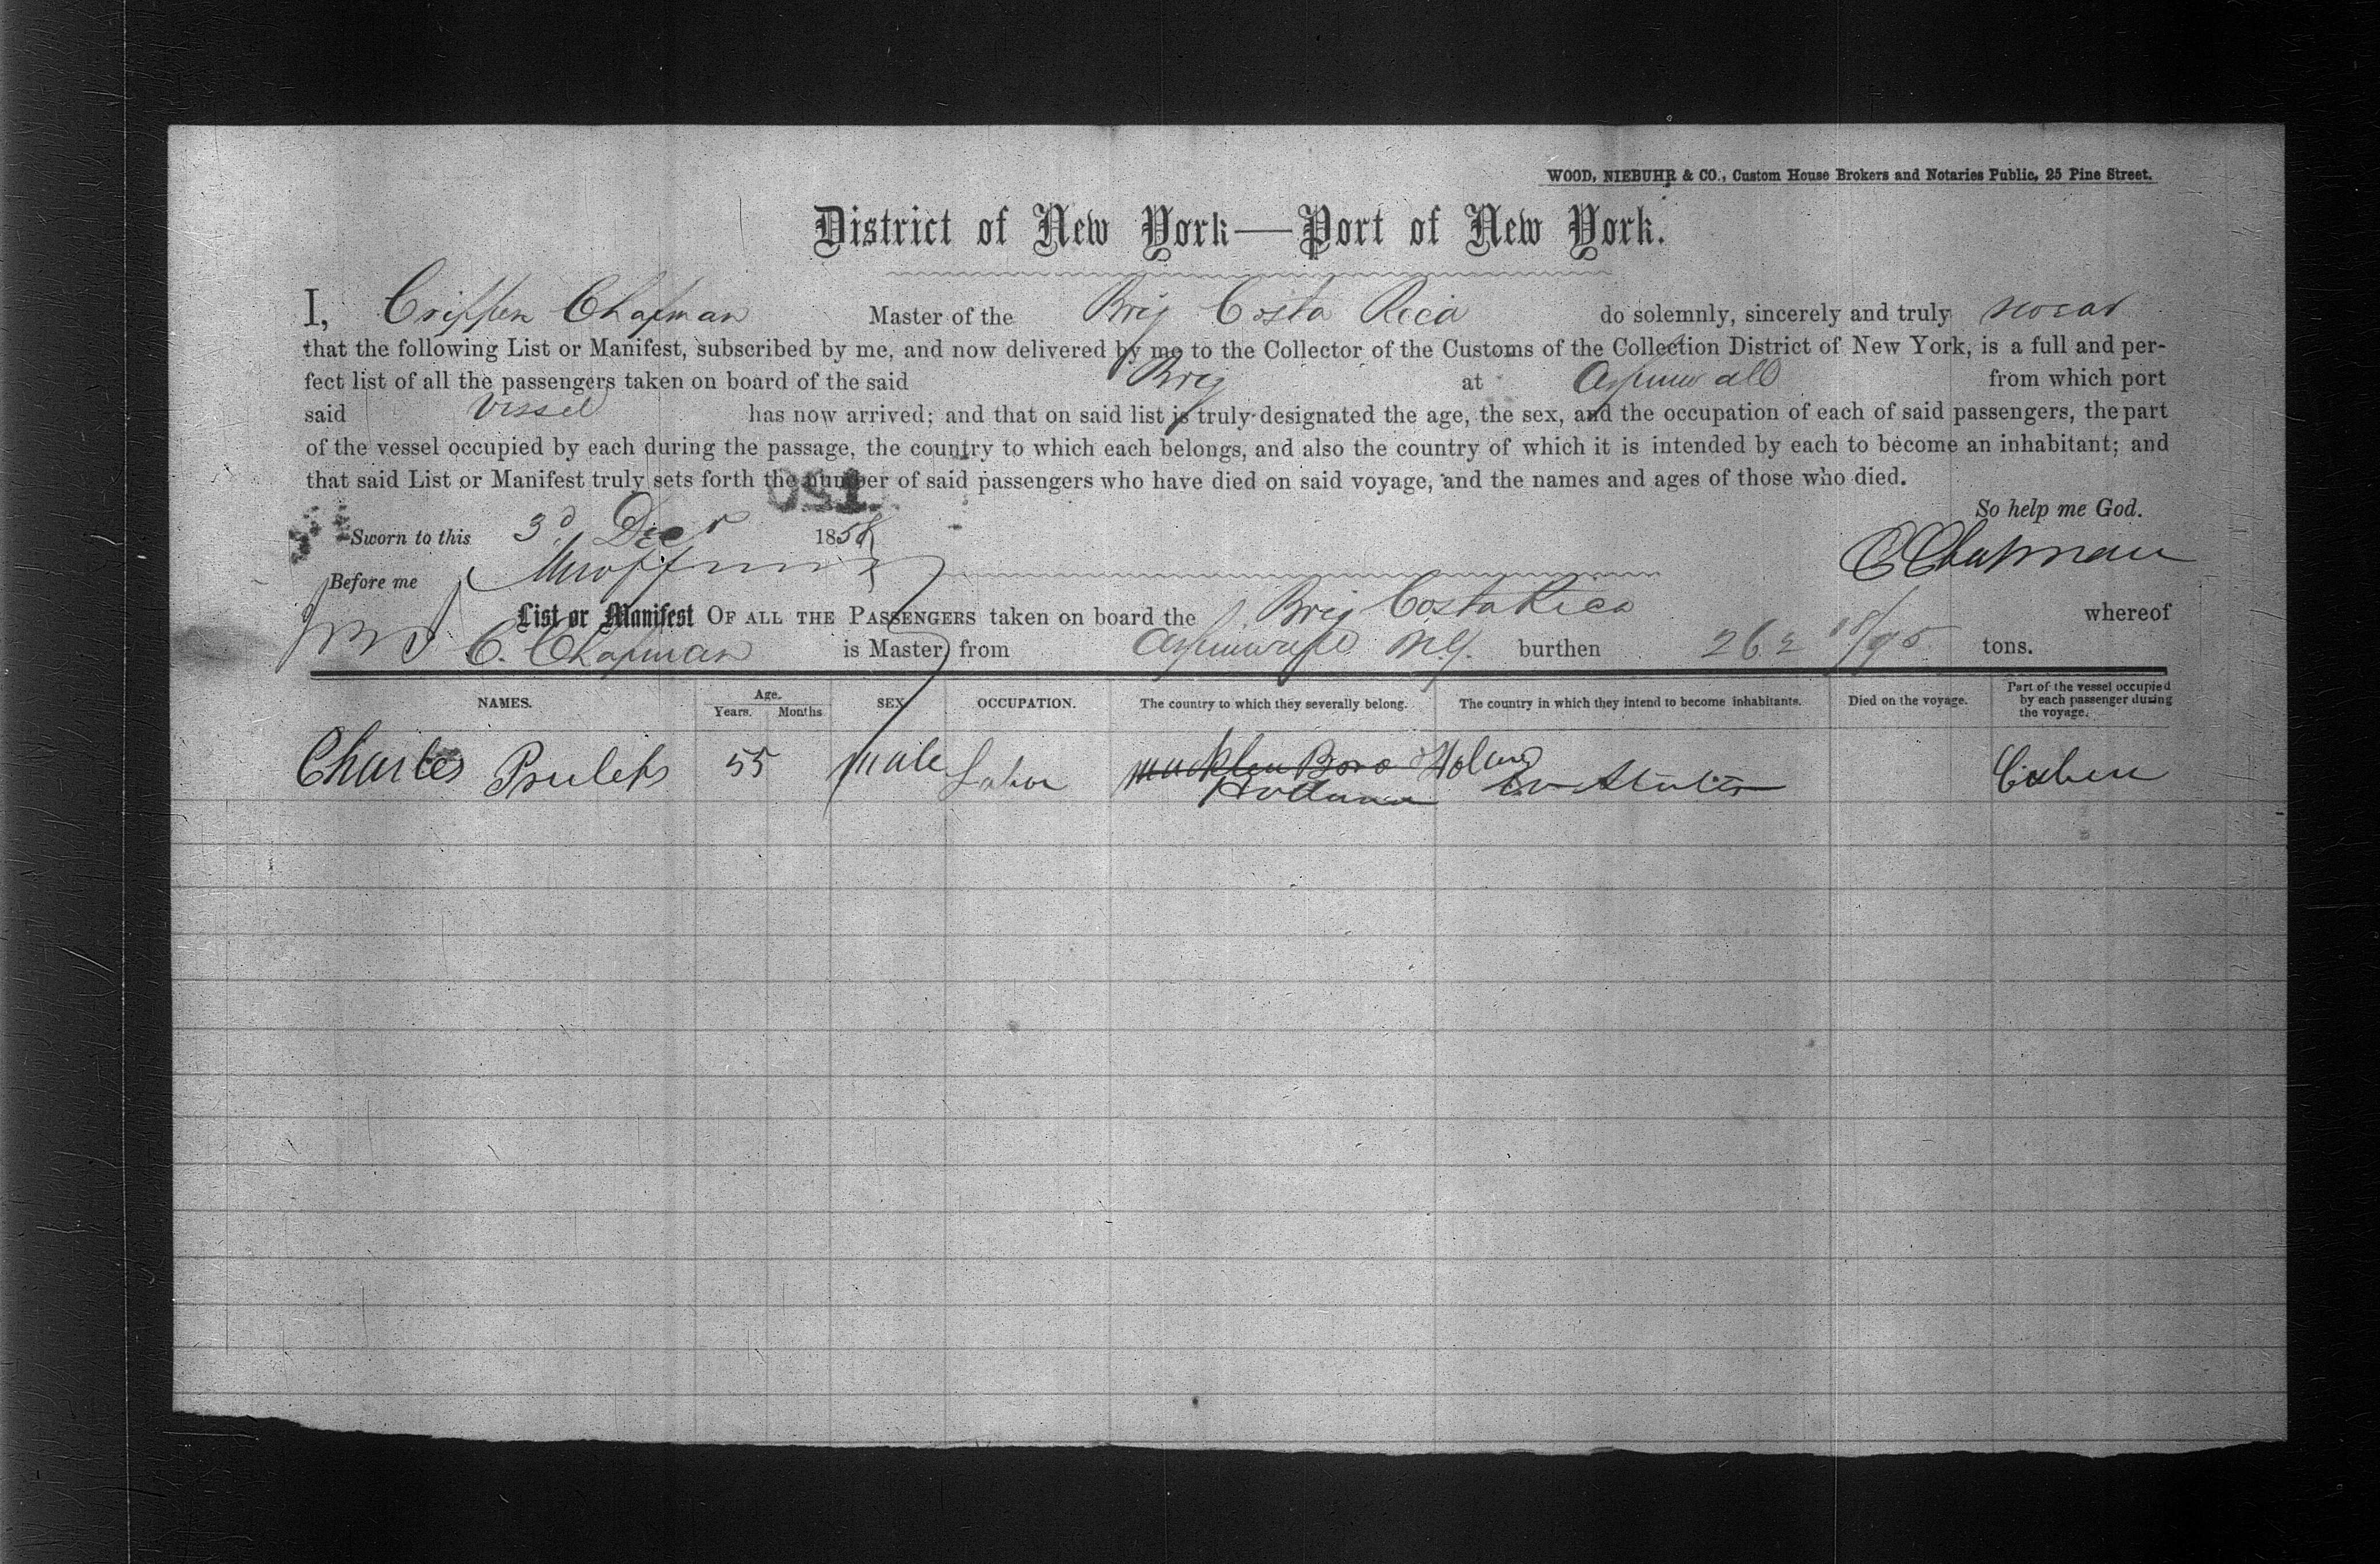 WOOD, NIEBUHR & CO., Custom House Brokers and Notaries Public, 25 Pine Street.
District of New York—Port of New York.
I, Chapman Master of the Brig Costa Rica do solemnly, sincerely and truly swear
that the following List or Manifest, subscribed by me, and now delivered by me to the Collector of the Customs of the Collection District of New York, is a full and per-
fect list of all the passengers taken on board of the said Brig at Aspinwall from which port
said Vessel has now arrived; and that on said list is truly designated the age, the sex, and the occupation of each of said passengers, the part
of the vessel occupied by each during the passage, the country to which each belongs, and also the country of which it is intended by each to become an inhabitant; and
that said List or Manifest truly sets forth the number of said passengers who have died on said voyage, and the names and ages of those who died.
So help me God.
Sworn to this 3d Decr 1858
C Chapman
Before me
List or Manifest OF ALL THE PASSENGERS taken on board the Brig Costa Rica whereof
C. Chapman is Master, from Aspinwall N.G. burthen 262 /95 tons.
NAMES. Age. Years. Months SEX OCCUPATION. The country to which they severally belong. The country in which they intend to become inhabitants. Died on the voyage. Part of the vessel occupied by each passenger during the voyage.
Charles 55 male Labor Holand